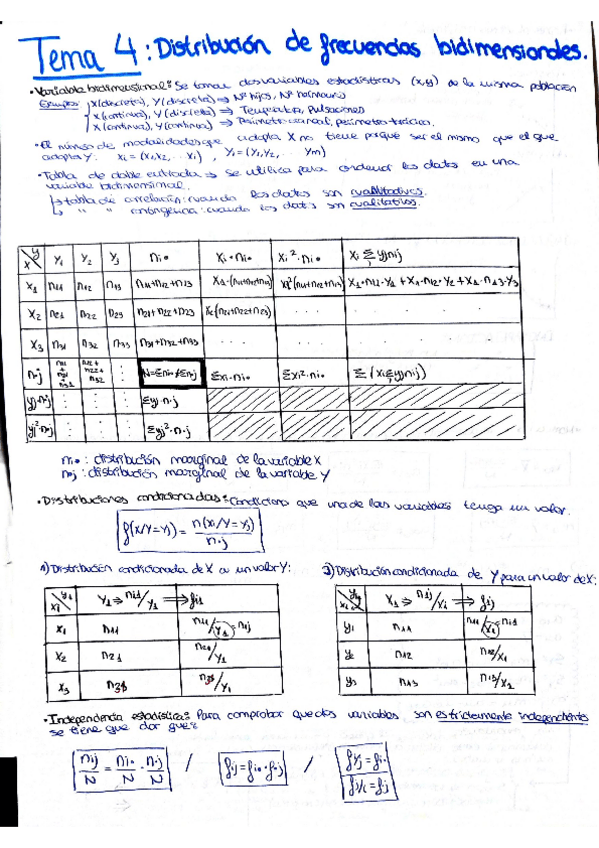 Tema 4: Distribución de frecuencias bidimensionales.
• Variable bidimensional: Se toman dos variables estadísticas (x,y) de la misma población
Ejemplos: X(discreta), Y(discreta) ⇒ Nº hijos, Nº hermanos
X(continua), Y(discreta) ⇒ Temperatura, pulsaciones
X(continua), Y(continua) ⇒ Perímetro craneal, perímetro torácico.
• El número de modalidades que adopta X no tiene porqué ser el mismo que el que
adopta Y. Xi = (X1,X2, ... Xi), Yi = (Y1,Y2, ... Ym)
• Tabla de doble entrada ⇒ Se utiliza para ordenar los datos en una
variable bidimensional.
↳ tabla de correlación: cuando los datos son cuantitativos.
↳ " " contingencia: cuando los datos son cualitativos.
X Y | Y1 | Y2 | Y3 | ni• | Xi·ni• | Xi²·ni• | Xi Σ yjnij
X1 | n11 | n12 | n13 | n11+n12+n13 | X1·(n11+n12+n13) | X1²(n11+n12+n13) | X1·n11·Y1 + X1·n12·Y2 + X1·n13·Y3
X2 | n21 | n22 | n23 | n21+n22+n23 | X2(n21+n22+n23) | ... | ...
X3 | n31 | n32 | n33 | n31+n32+n33 | . . . | . . . | . . .
n•j | n11+n21+n31 | n12+n22+n32 | : | N=Σni•=Σn•j | Σxi·ni• | Σxi²·ni• | Σ(XiΣyjnij)
yj·n•j | : | : | : | Σyj·n•j
yj²·n•j | : | : | : | Σyj²·n•j
ni•: distribución marginal de la variable X
n•j: distribución marginal de la variable Y
• Distribuciones condicionadas: Condiciona que una de las variables tenga un valor.
f(x/Y=yj) = n(x/Y=yj) / n•j
1) Distribución condicionada de X a un valor Y:
Y1 ⇒ ni1/Y1 ⇒ fi1
X1 | n11 | n11/Y1
X2 | n21 | n21/Y1
X3 | n31 | n31/Y1
2) Distribución condicionada de Y para un valor de X:
X1 ⇒ n1j/X1 ⇒ fij
Y1 | n11 | n11/X1
Y2 | n12 | n12/X1
Y3 | n13 | n13/X1
• Independencia estadística: Para comprobar que dos variables son estrictamente independientes
se tiene que dar que:
nij/N = ni•/N · n•j/N / fij = fi•·f•j / fi/j = fi•
fj/i = f•j